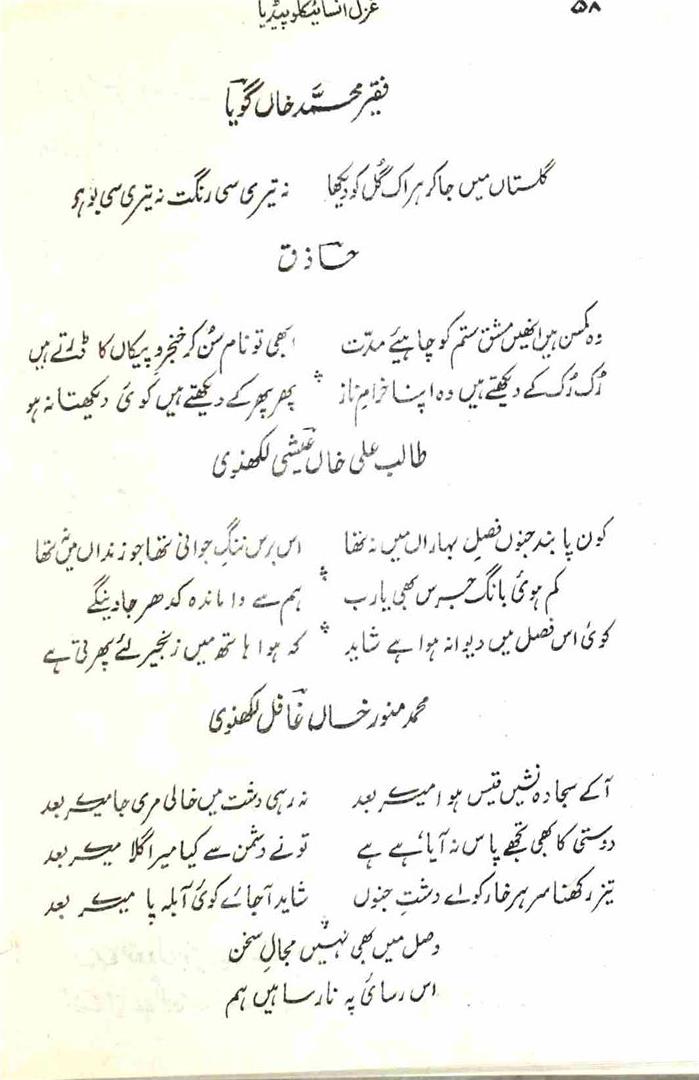 ۵۸ غزل انسائیکلوپیڈیا
فقیر محمد خاں گویا
گلستاں میں جاکر ہر اک گُل کو دیکھا نہ تیری سی رنگت نہ تیری سی بو ہو
حاذق
وہ کمسن ہیں انھیں مشق ستم کو چاہیئے مدّت ابھی تو نام سُن کر خنجر و پیکاں کا ڈرتے ہیں
رُک رُک کے دیکھتے ہیں وہ اپنا خرامِ ناز پھر پھر کے دیکھتے ہیں کوئی دیکھتا نہ ہو
طالب علی خاں عیشی لکھنوی
کون پابند جنوں فصلِ بہاراں میں نہ تھا اس برس ننگِ جوانی تھا جو زنداں میں تھا
کم ہوئی بانگ جرس بھی یارب ہم سے واماندہ کدھر جاوینگے
کوئی اس فصل میں دیوانہ ہوا ہے شاید کہ ہوا ہاتھ میں زنجیر لئے پھرتی ہے
محمد منور خاں غافل لکھنوی
آکے سجادہ نشیں قیس ہوا میرے بعد نہ رہی دشت میں خالی مری جا میرے بعد
دوستی کا بھی تجھے پاس نہ آیا ہے ہے تونے دشمن سے کیا میرا گلا میرے بعد
تیز رکھنا سر ہر خار کو اے دشتِ جنوں شاید آجائے کوئی آبلہ پا میرے بعد
وصل میں بھی نہیں مجالِ سخن
اس رسائی پہ نارسا ہیں ہم